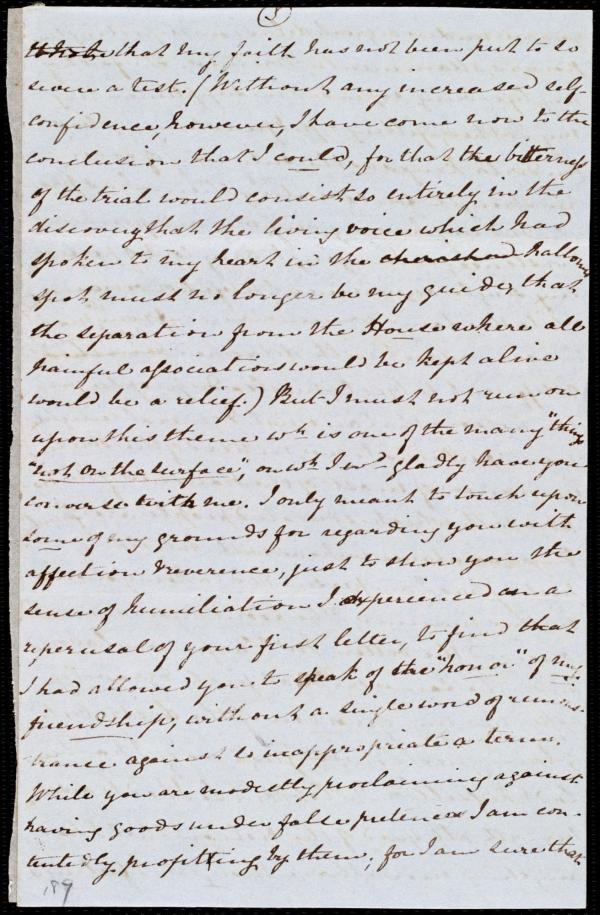 5
that my faith has not been put to so
severe a test. (Without any increased self-
confidence, however, I have come now to the
conclusion that I could, for that the bitterness
of the trial would consist so entirely in the
discovery that the living voice which had
spoken to my heart in the cherished hallowed
spot must no longer be my guide, that
the separation from the House where all
painful associations would be kept alive
would be a relief.) But I must not run on
upon this theme wh. is one of the many "things
"not on the surface", on wh. I wd. gladly have you
converse with me. I only meant to touch upon
some of my grounds for regarding you with
affection & reverence, just to show you the
sense of humiliation I experienced on a
reperusal of your first letter, to find that
I had allowed you to speak of the "honor" of my
friendship, without a single word of remons-
trance against so inappropriate a term.
While you are modestly proclaiming against
having goods under false pretences I am con-
tentedly profitting by them; for I am sure that
189